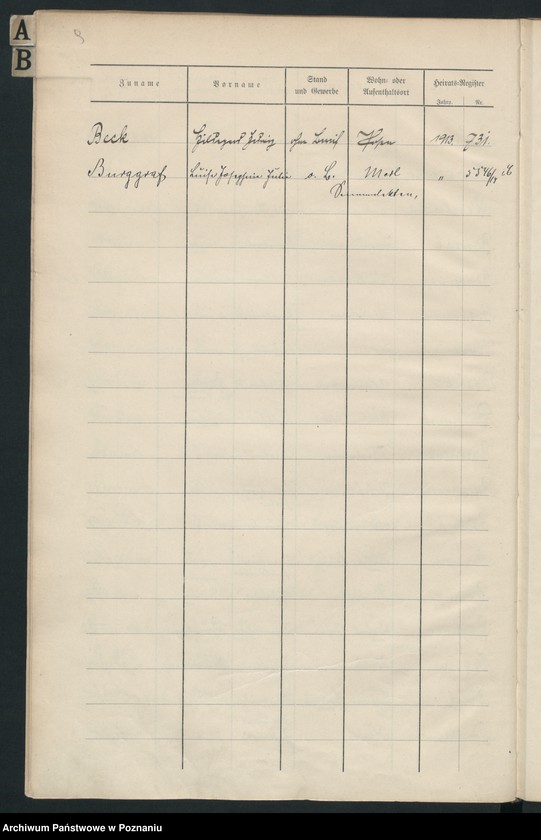 A
B
Zuname Vorname Stand und Gewerbe Wohn- oder Aufenthaltsort Heirats-Register Jahrg. Nr.
Beck Hildegard Hedwig ohne Beruf Posen 1913. 731.
Burggraf Luise Josephine Julie o. B. „
Archiwum Państwowe w Poznaniu